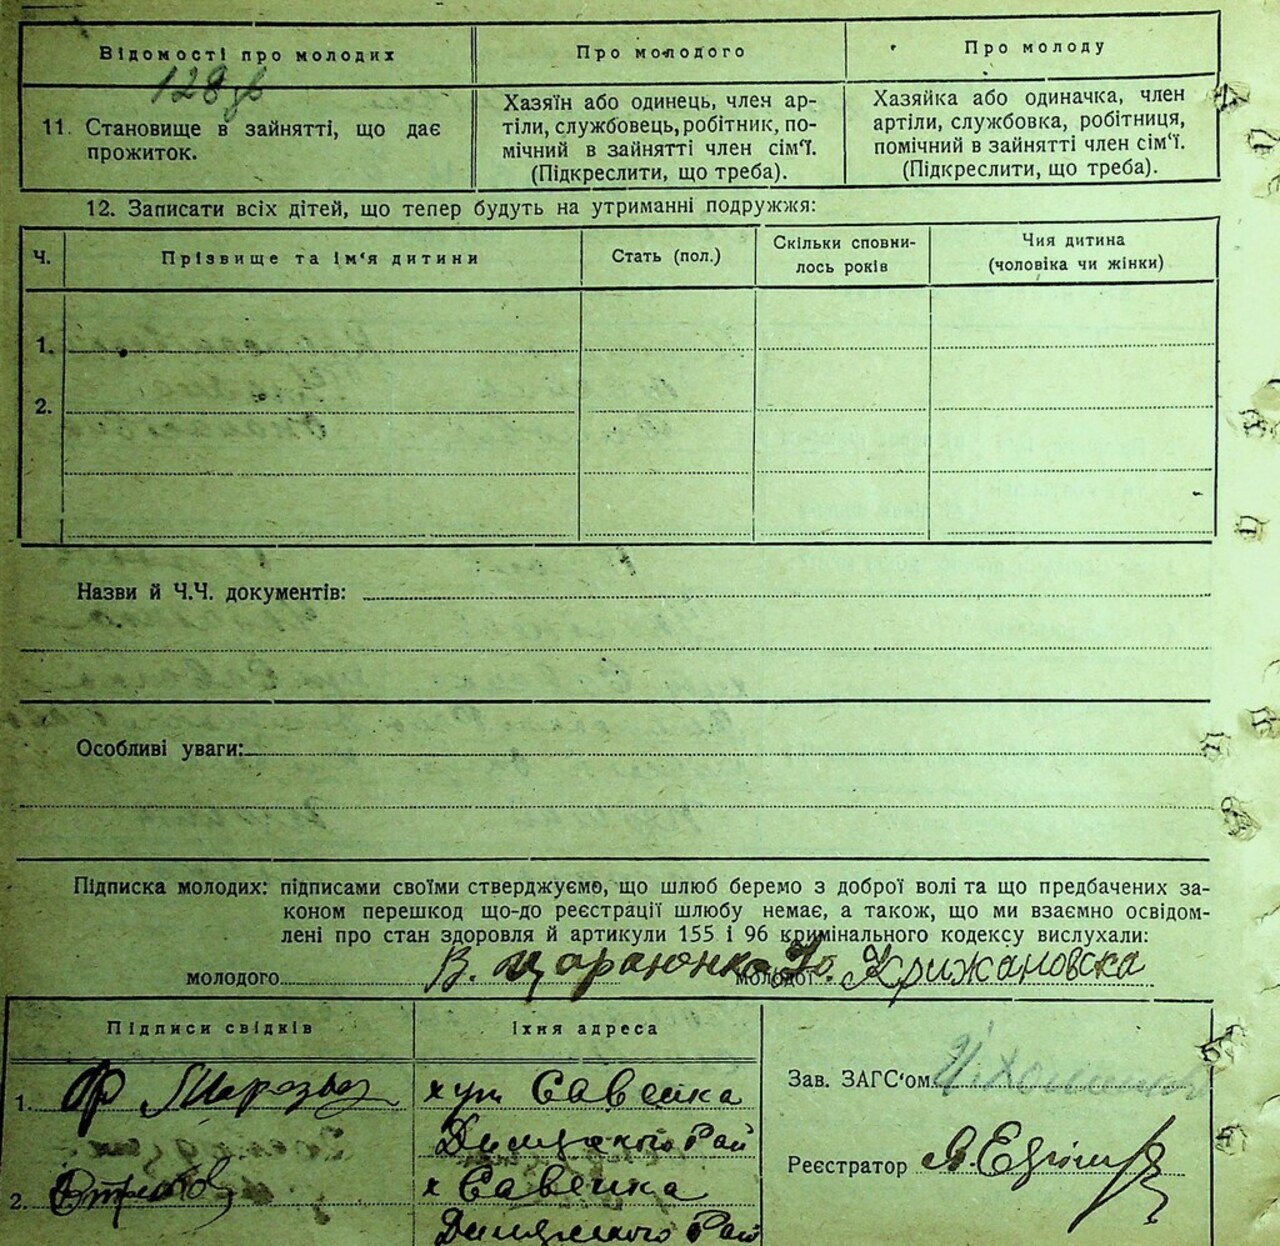 Відомості про молодих
Про молодого
Про молоду
128
11. Становище в зайнятті, що дає
прожиток.
Хазяїн або одинець, член ар-
тіли, службовець, робітник, по-
мічний в зайнятті член сім'ї.
(Підкреслити, що треба).
Хазяйка або одиначка, член
артіли, службовка, робітниця,
помічний в зайнятті член сім'ї.
(Підкреслити, що треба).
12. Записати всіх дітей, що тепер будуть на утриманні подружжя:
Ч.
Прізвище та ім'я дитини
Стать (пол.)
Скільки сповни-
лось років
Чия дитина
(чоловіка чи жінки)
1.
2.
Назви й Ч.Ч. документів:
Особливі уваги:
Підписка молодих: підписами своїми стверджуємо, що шлюб беремо з доброї волі та що предбачених за-
коном перешкод що-до реєстрації шлюбу немає, а також, що ми взаємно освідом-
лені про стан здоровля й артикули 155 і 96 кримінального кодексу вислухали:
молодого В. молодої Ю. Крижановска
Підписи свідків
Їхня адреса
1.
хут Савейка
Рай
2.
х Савейка
Рай
Зав. ЗАГС'ом
Реєстратор